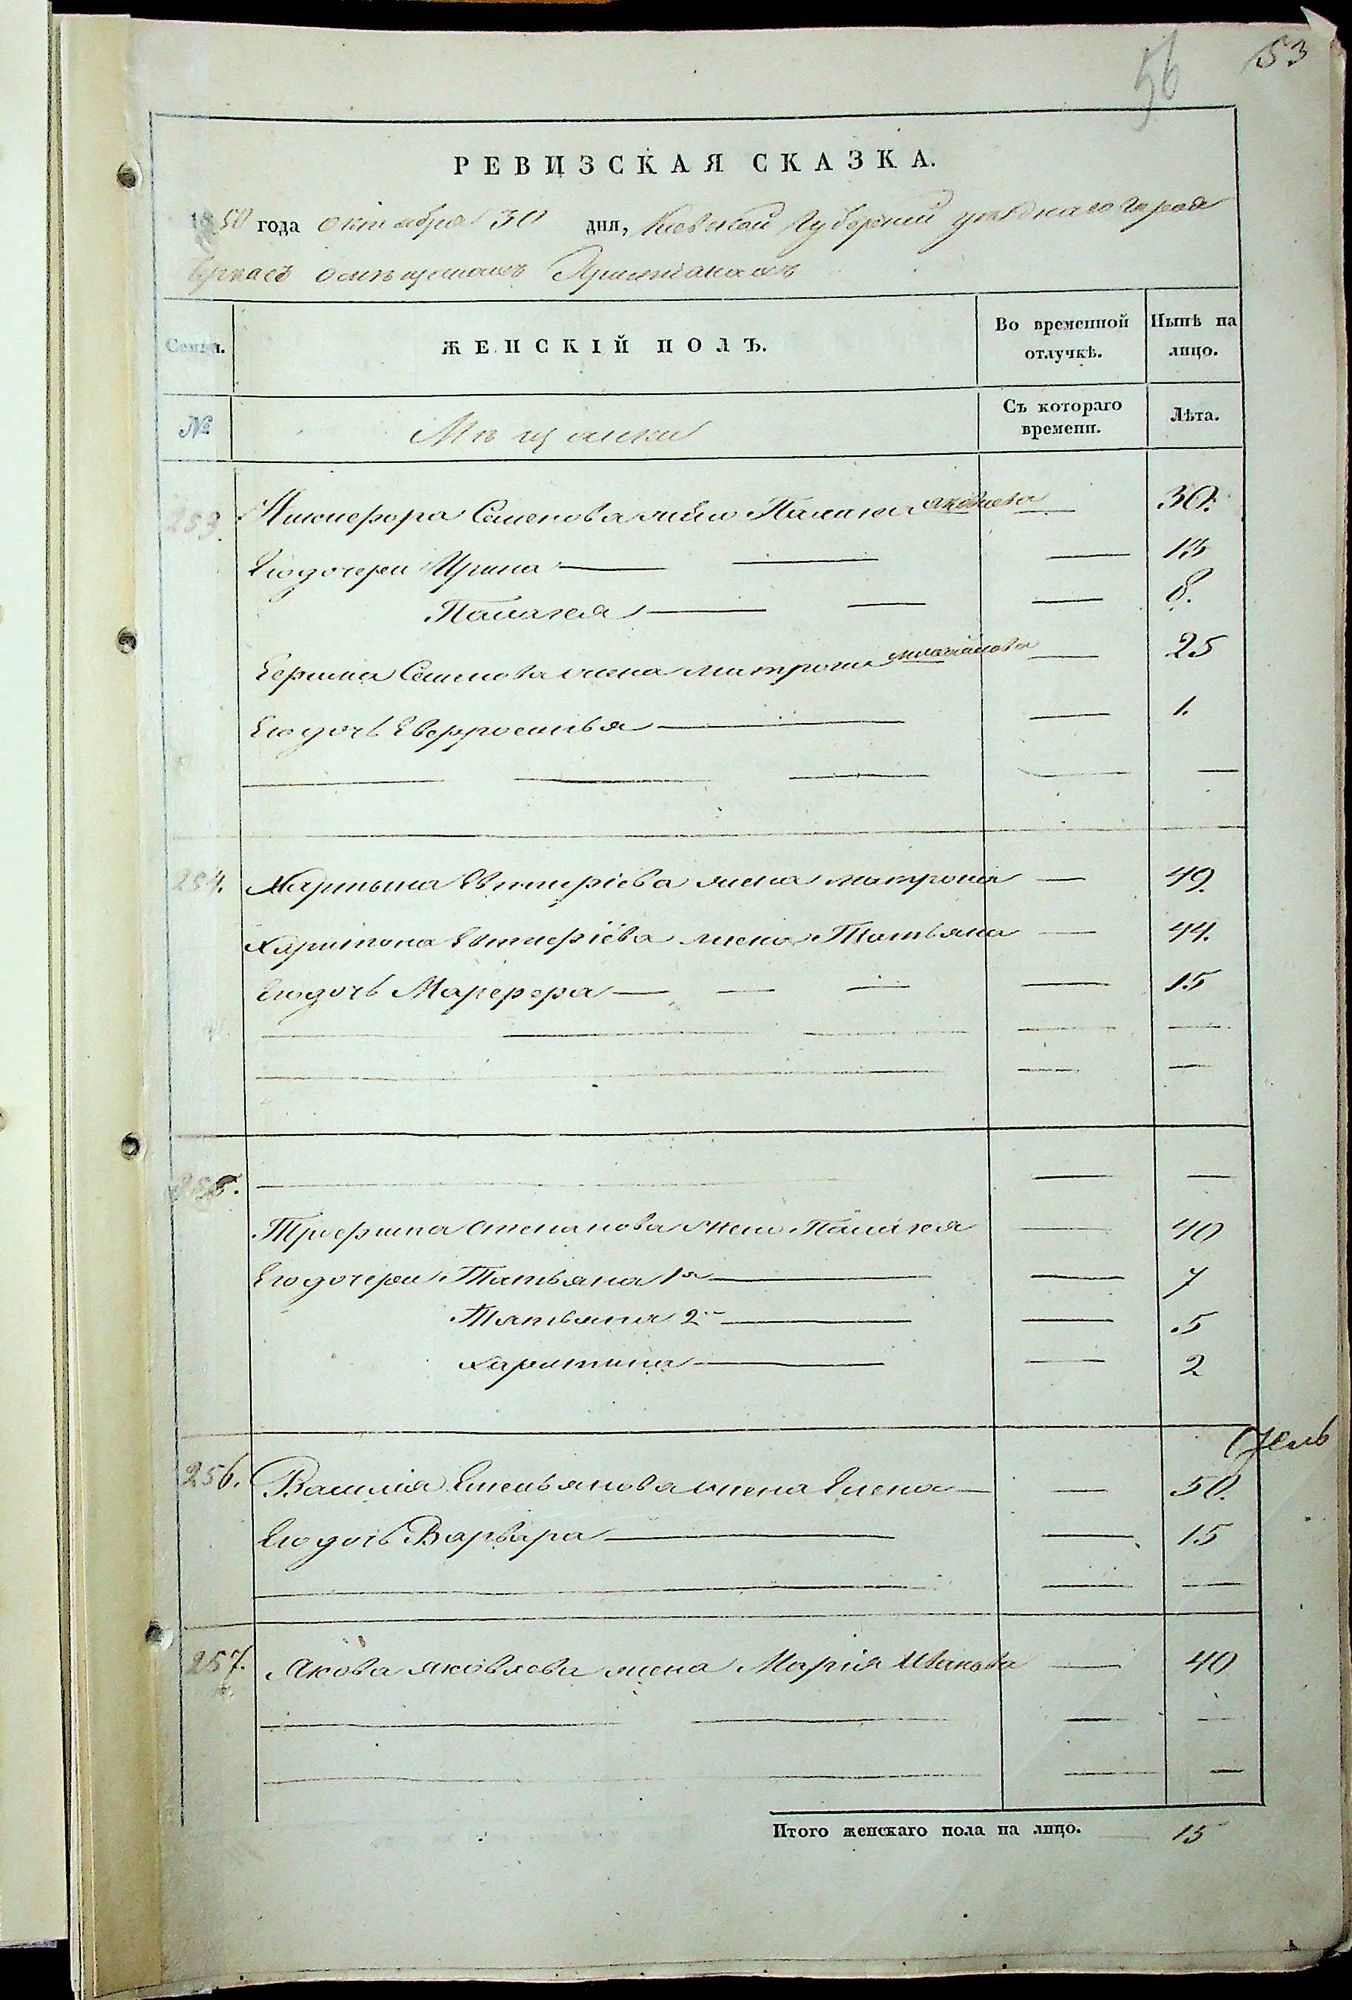 56 53
РЕВИЗСКАЯ СКАЗКА.
1850 года октября 30 дня, Киевской Губерний уѣзднаго города
Черкасъ о мѣщанахъ Христіанахъ
Семьи. ЖЕНСКІЙ ПОЛЪ. Во временной отлучкѣ. Нынѣ на лицо.
№ Мѣщанки Съ котораго времени. Лѣта.
253. Никифора Семенова жена Палагея Яковлева — 30.
Его дочери Ирина — — — 13
Палагея — — — 8.
Ефима Семенова жена Матрона — 25
Его дочь Евфросинья — — 1.
254. Мартына Евтифіева жена Матрона — 49.
Харитона Евтифіева жена Татьяна — 44.
Его дочь — — — — 15
255. — — —
Трофима Степанова жена Палагея — 40
Его дочери Татьяна 1я — — 7
Татьяна 2я — — 5
Харитина — — 2
256. Василия Емельянова жена Елена — — 50.
Его дочь Варвара — — 15
257. Якова Яковлева жена Марія Иванова — 40
Итого женскаго пола на лицо. — 15